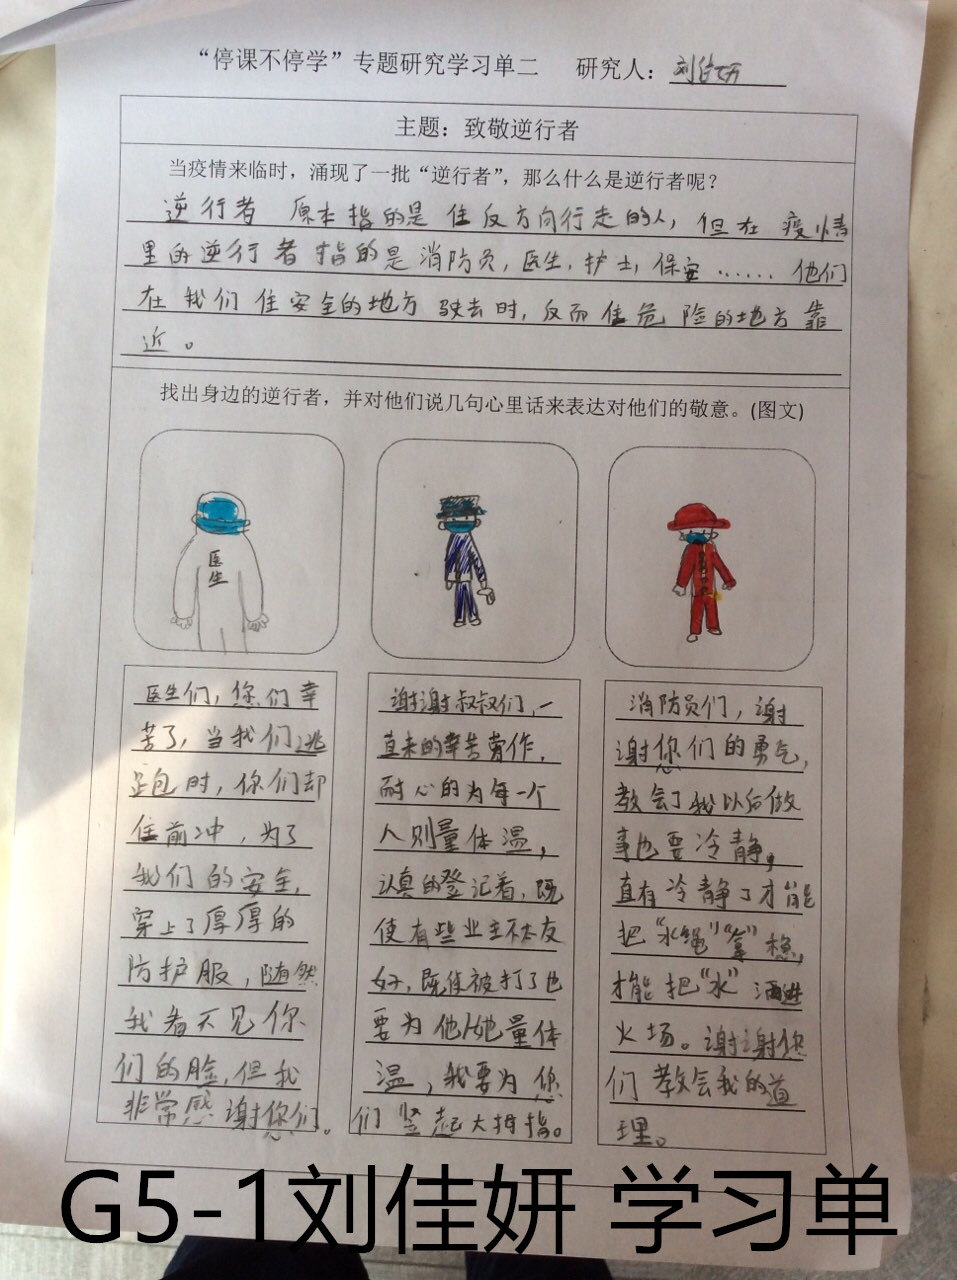 “停课不停学”专题研究学习单二 研究人：刘佳妍
主题：致敬逆行者
当疫情来临时，涌现了一批“逆行者”，那么什么是逆行者呢？
逆行者 原本指的是往反方向行走的人，但在疫情
里的逆行者指的是消防员，医生，护士，保安……他们
在我们往安全的地方驶去时，反而往危险的地方靠
近。
找出身边的逆行者，并对他们说几句心里话来表达对他们的敬意。(图文)
医
生
医生们，您们辛
苦了，当我们逃
跑时，你们却
往前冲，为了
我们的安全，
穿上了厚厚的
防护服，随然
我看不见你
们的脸，但我
非常感谢您们。
谢谢叔叔们，一
直来的辛苦劳作，
耐心的为每一个
人则量体温，
认真的登记着，既
使有些业主不太友
好，既使被打了也
要为他/她量体
温，我要为您
们竖起大拇指。
消防员们，谢
谢您们的勇气，
教会了我以后做
事也要冷静，
直有冷静了才能
把“水绳”“拿”稳，
才能把“水”洒进
火场。谢谢您
们教会我的道
理。
G5-1刘佳妍 学习单